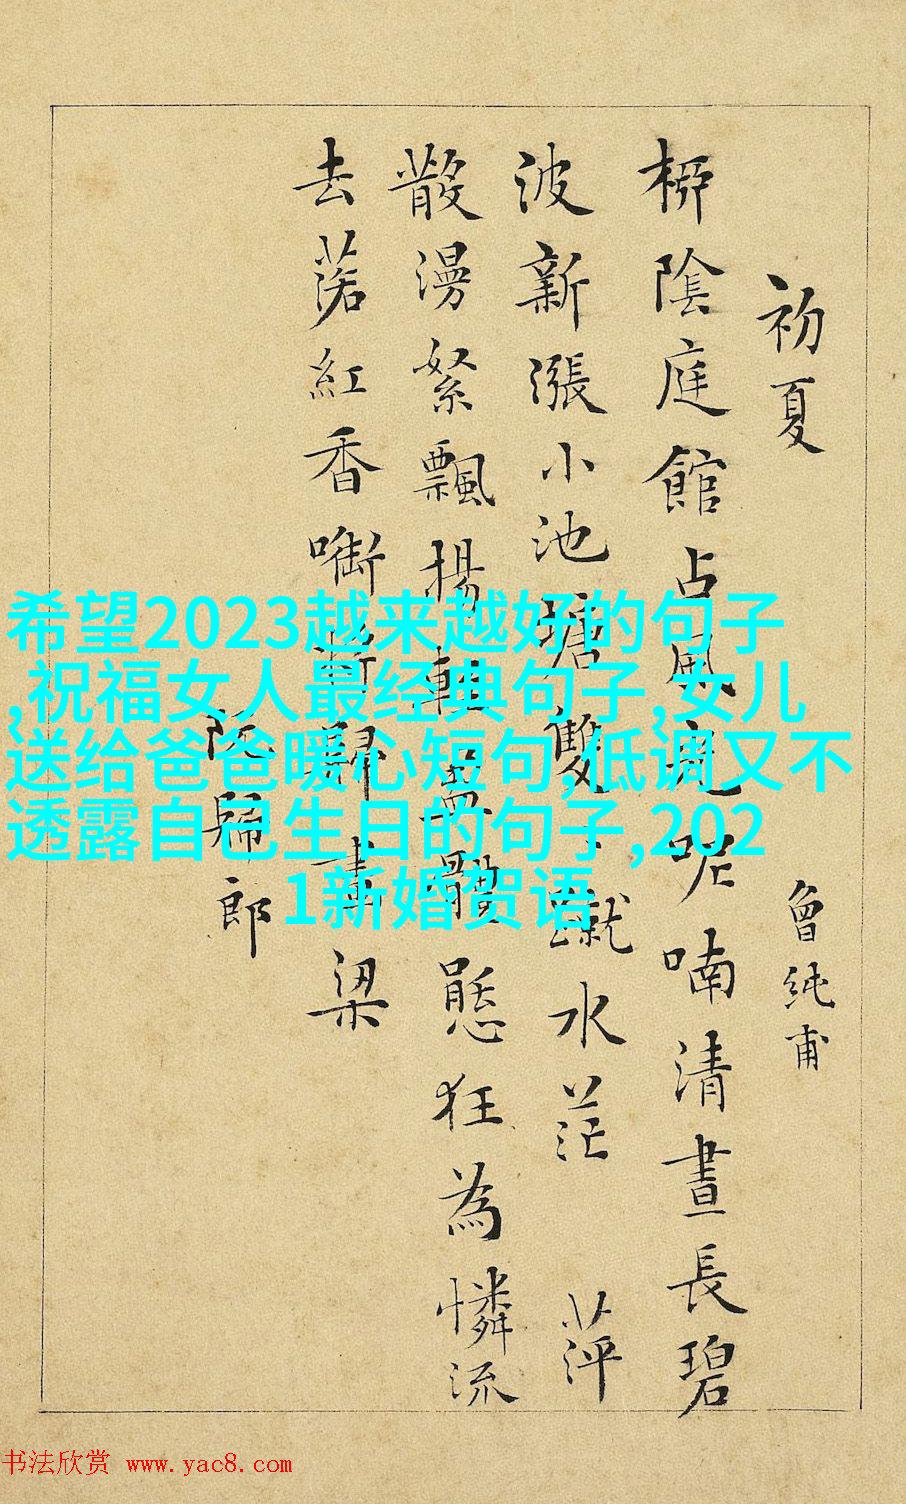 初夏 曾純甫
桺陰庭館占風光呢喃清晝長碧
波新漲小池塘雙〻蹴水茫 萍
散漫絮飄揚輕盈體態狂為憐流
去落紅香啣將歸畫梁
阮歸郎
希望2023越来越好的句子
,祝福女人最经典句子,女儿
送给爸爸暖心短句,低调又不
透露自己生日的句子,202
1新婚贺语
书法欣赏 www.yac8.com